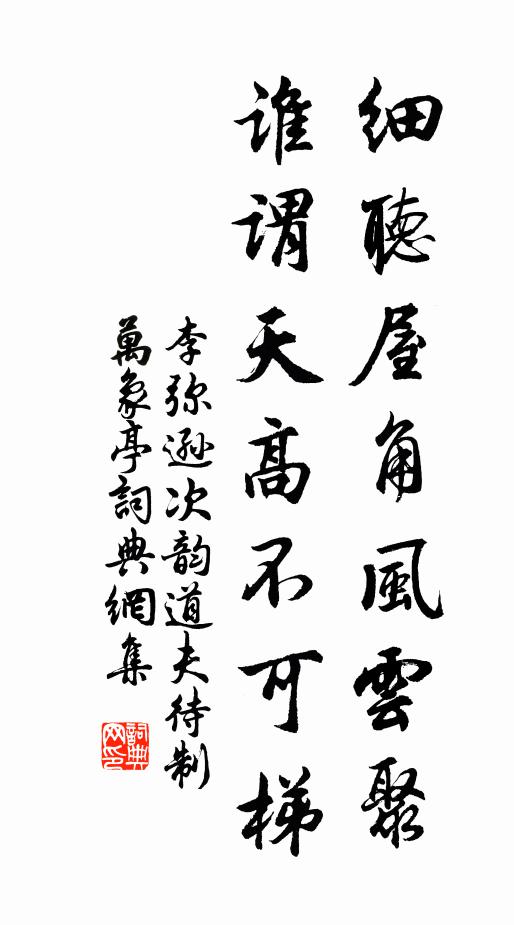 細聽屋角風雲聚
誰謂天高不可梯
李弥遜次韵道夫待制
萬象亭詞典網集
詞典网印